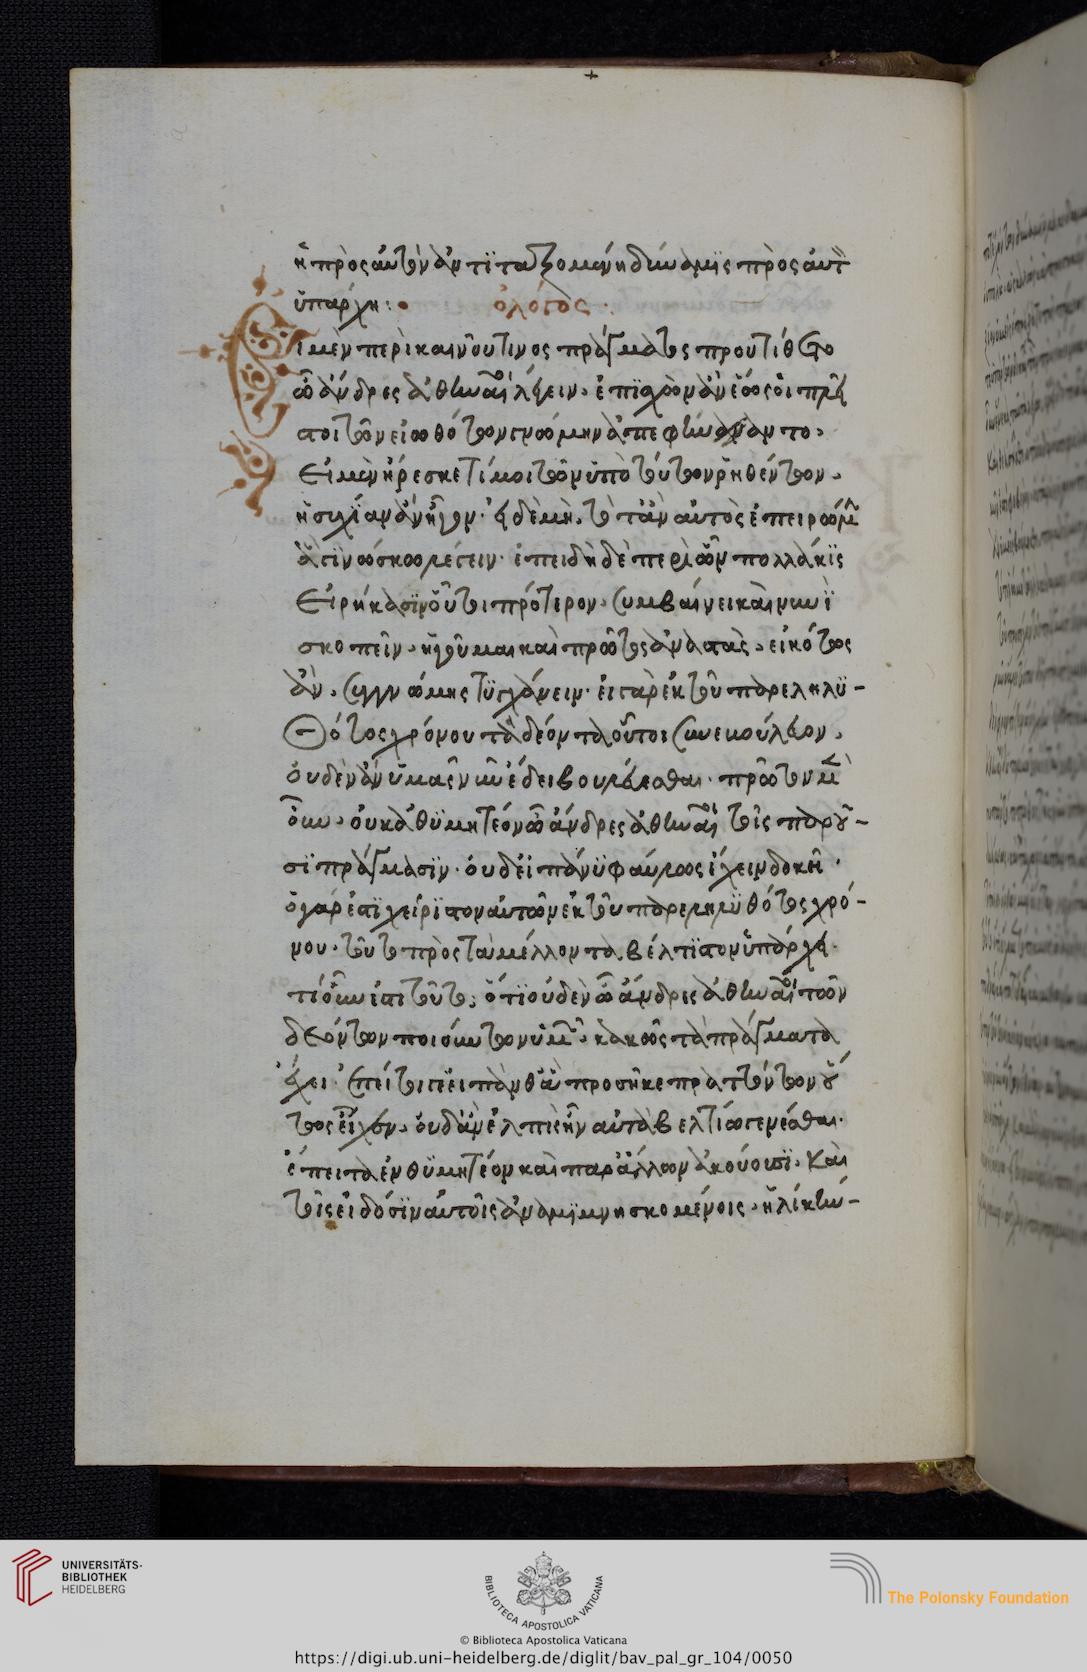 ἢ πρὸς αὐτὸν ἀντιταξομένη δύναμις πρὸς αὐτ
ὑπάρχη:
ὁ λόγος.
Εἰ μὲν περὶ καινοῦ τινος πράγματος προυτίθετο
ὦ ἄνδρες ἀθηναῖοι λέγειν, ἐπισχὼν ἂν ἕως οἱ πλεῖ
στοι τῶν εἰωθότων γνώμην ἀπεφήναντο,
εἰ μὲν ἤρεσκέ τί μοι τῶν ὑπὸ τούτων ῥηθέντων,
ἡσυχίαν ἂν ἦγον· εἰ δὲ μὴ, τότ' ἂν αὐτὸς ἐπειρώμην
ἃ γινώσκω λέγειν· ἐπειδὴ δὲ περὶ ὧν πολλάκις
εἰρήκασιν οὗτοι πρότερον, συμβαίνει καὶ νυνὶ
σκοπεῖν, ἡγοῦμαι καὶ πρῶτος ἀναστὰς, εἰκότως
ἂν, συγγνώμης τυγχάνειν· εἰ γὰρ ἐκ τοῦ παρεληλυ-
θότος χρόνου τὰ δέονθ' οὗτοι συνεβούλευον,
οὐδὲν ἂν ὑμᾶς νῦν ἔδει βουλεύεσθαι· πρῶτον μὲν
οὖν, οὐκ ἀθυμητέον ὦ ἄνδρες ἀθηναῖοι τοῖς παροῦ-
σι πράγμασιν· οὐδ' εἰ πάνυ φαύλως ἔχειν δοκεῖ·
ὃ γάρ ἐστι χείριστον αὐτῶν ἐκ τοῦ παρεληλυθότος χρό-
νου· τοῦτο πρὸς τὰ μέλλοντα βέλτιστον ὑπάρχει·
τί οὖν ἐστι τοῦτο; ὅτι οὐδὲν ὦ ἄνδρες ἀθηναῖοι τῶν
δεόντων ποιούντων ὑμῶν, κακῶς τὰ πράγματα
ἔχει· ἐπεί τοι γε εἰ πάνθ' ἃ προσῆκε πραττόντων οὕ
τως εἶχεν, οὐδ' ἂν ἐλπὶς ἦν αὐτὰ βελτίω γενέσθαι·
ἔπειτα ἐνθυμητέον καὶ παρ' ἄλλων ἀκούουσι, καὶ
τοῖς εἰδόσιν αὐτοῖς ἀναμιμνησκομένοις, ἡλίκην-
UNIVERSITÄTS-
BIBLIOTHEK
HEIDELBERG
BIBLIOTECA APOSTOLICA VATICANA
The Polonsky Foundation
© Biblioteca Apostolica Vaticana
https://digi.ub.uni-heidelberg.de/diglit/bav_pal_gr_104/0050